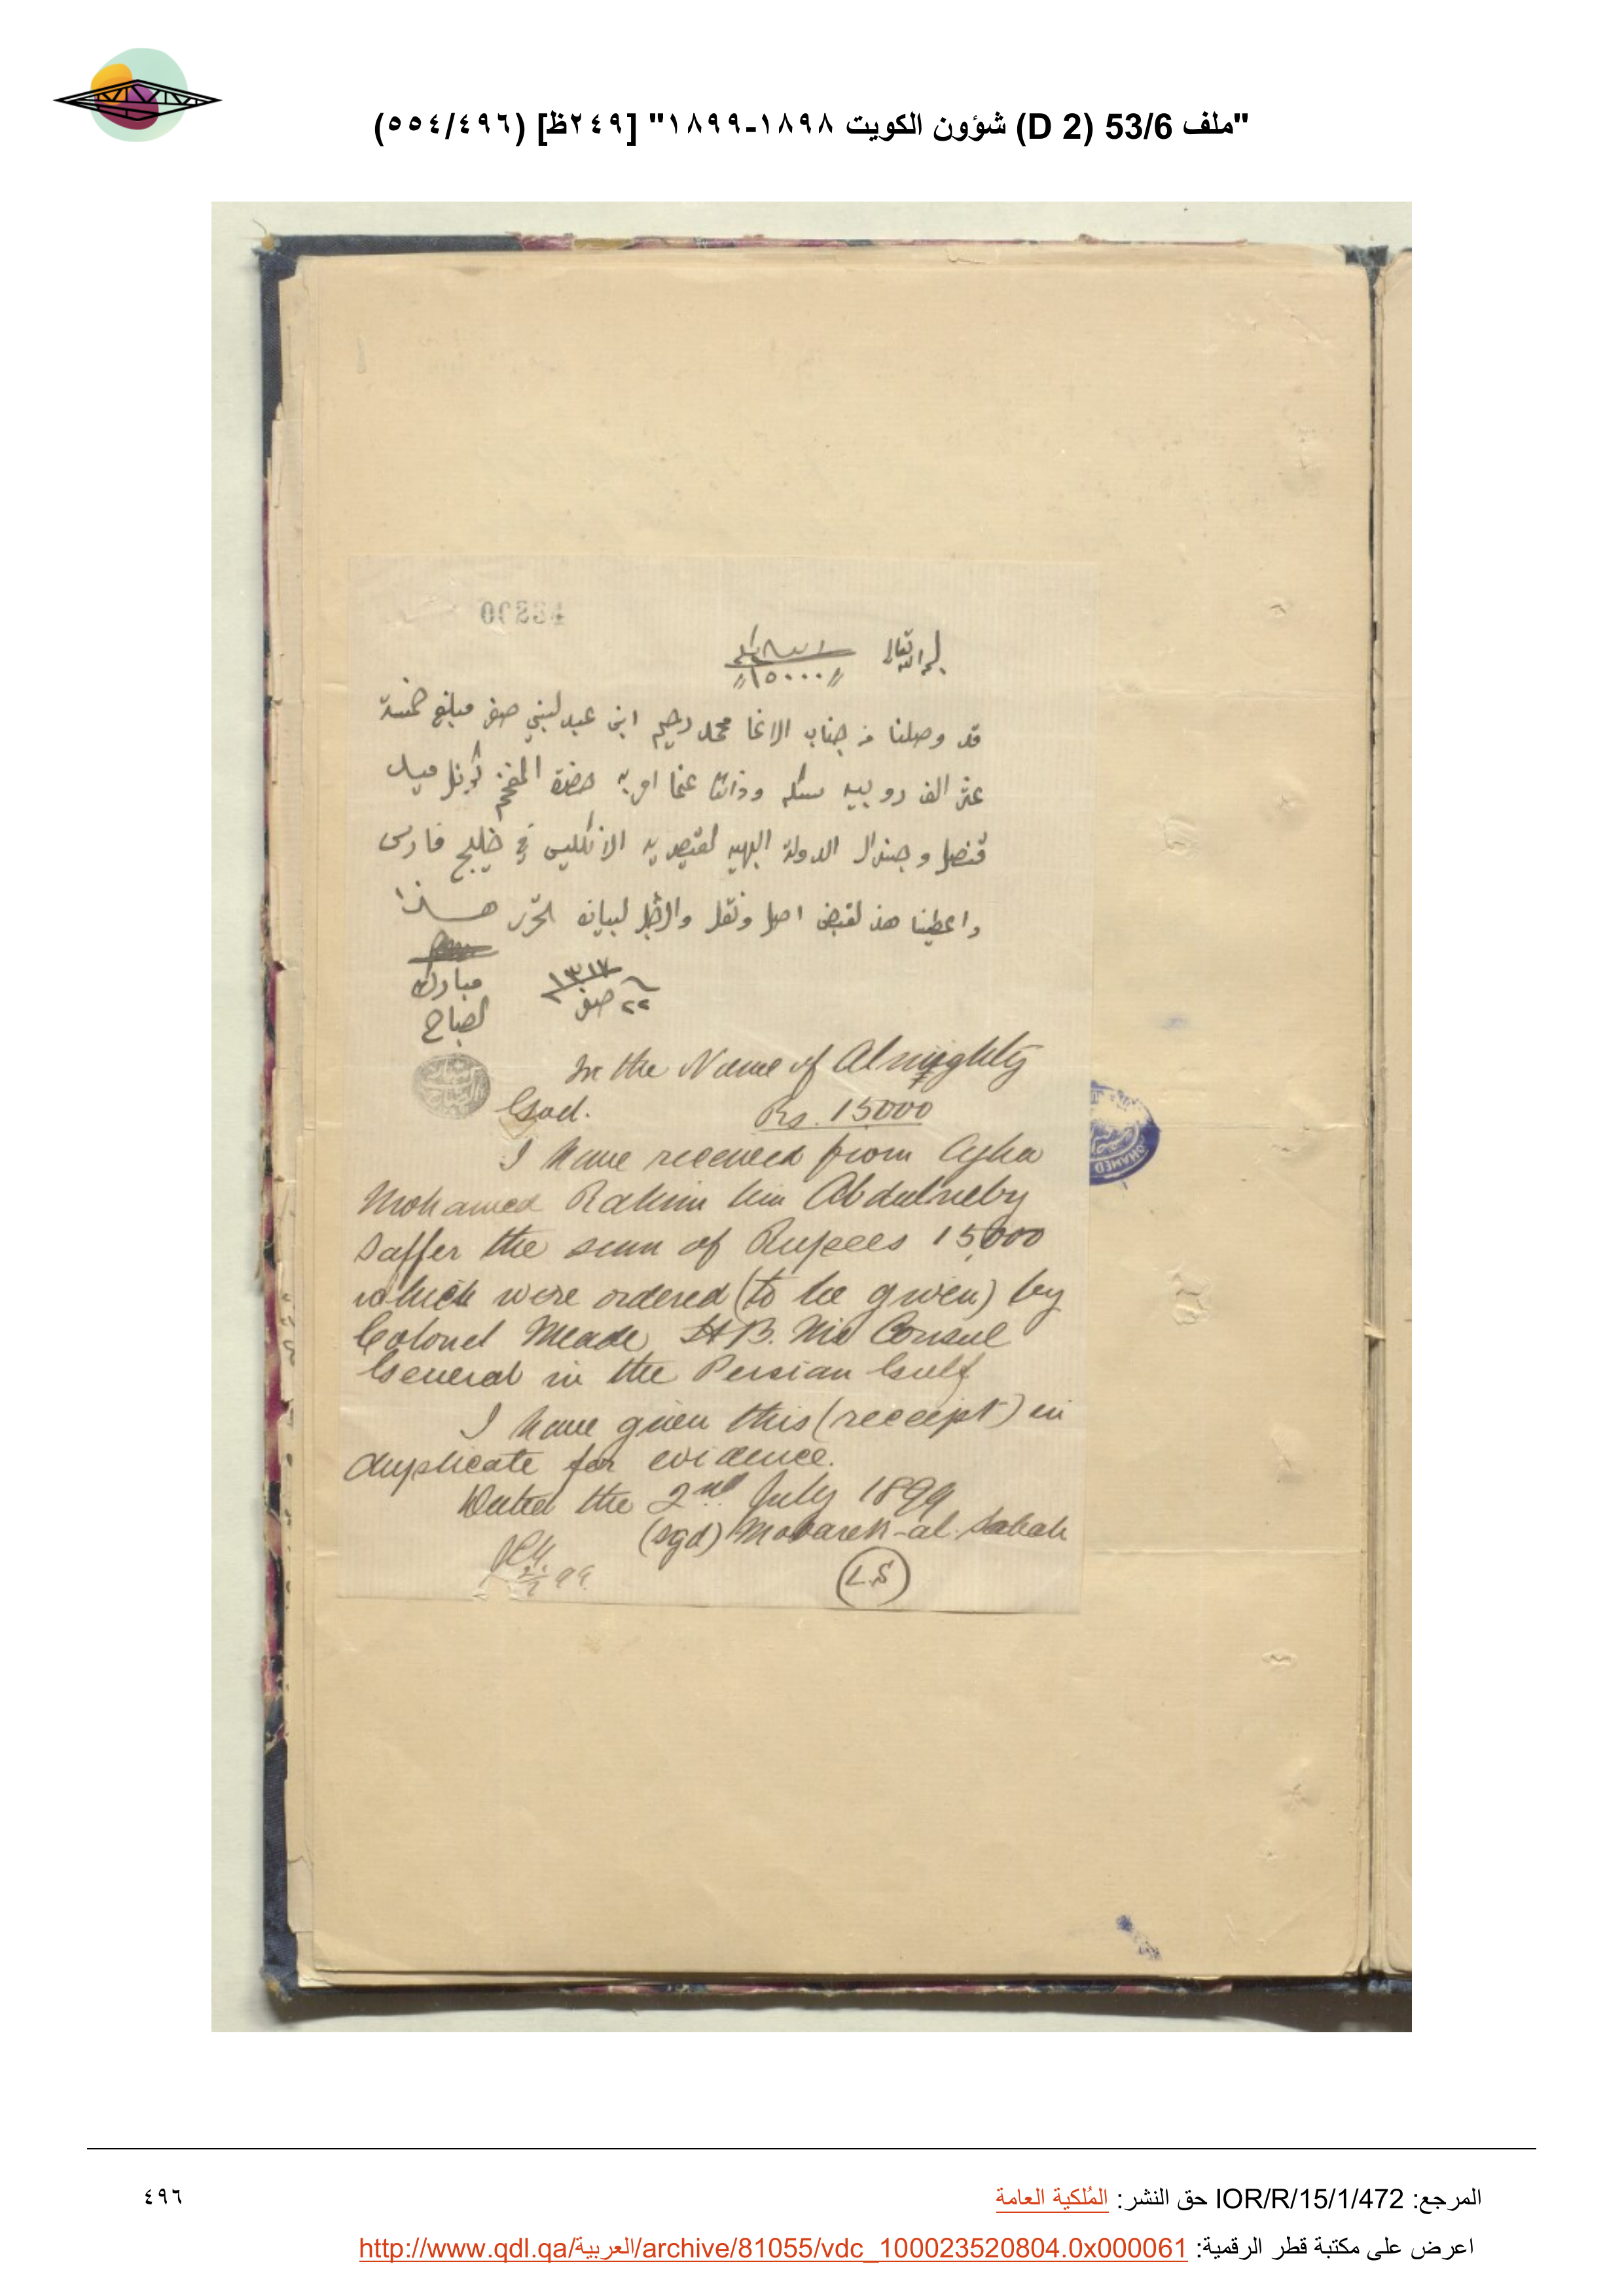 "ملف 53/6 (D 2) شؤون الكويت ١٨٩٨-١٨٩٩" [٢٤٩ظ] (٥٥٤/٤٩٦)
بسم الله تعالى
١٥٠٠٠
قد وصلنا من جناب الاغا محمد رحيم ابن عبدلنبي صفر مبلغ خمسة
عشر الف روبيه سكه وذالك عما امر به حضرة المفخم كرنل ميد
قنصل وجنرال الدولة البهيه لقيصريه الانكليس في خليج فارس
واعطينا هذ لقبض اصل ونقل ولاجل لبيان لحرر هذا
٢٢ صفر ١٣١٧
مبارك
لصباح
In the Name of Almighty
God. Rs. 15000
I have received from Agha
Mohamed Rahim bin Abdulneby
Saffer the sum of Rupees 15,000
which were ordered (to be given) by
Colonel Meade H B. M's Consul
General in the Persian Gulf
I have given this (receipt) in
duplicate for evidence.
Dated the 2nd July 1899
(sgd) Mobarek-al-Sabah
L.S
المرجع: IOR/R/15/1/472 حق النشر: المُلكية العامة
٤٩٦
اعرض على مكتبة قطر الرقمية: http://www.qdl.qa/العربية/archive/81055/vdc_100023520804.0x000061